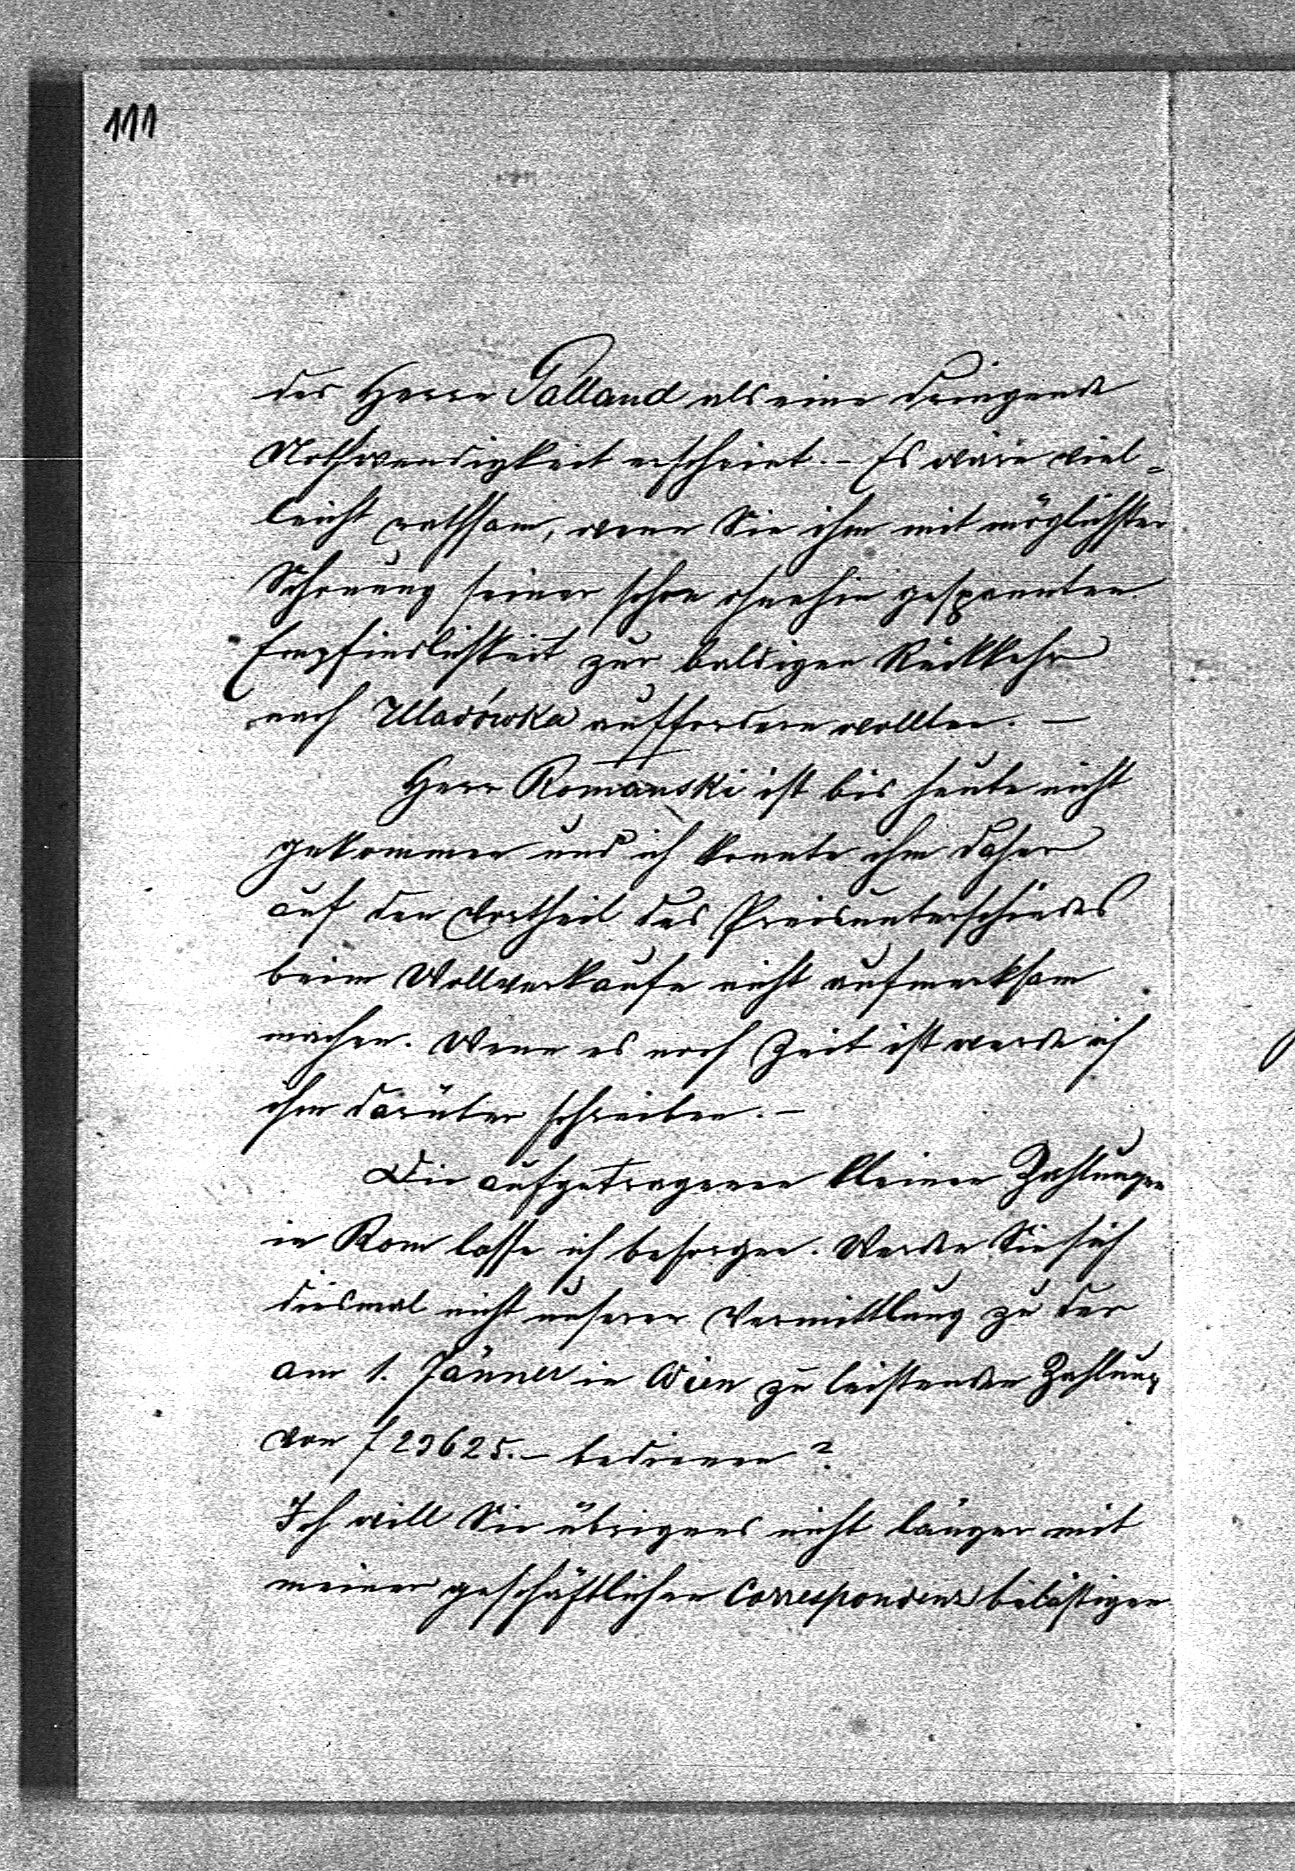 111
des Herrn Palland als eine dringende
Nothwendigkeit erscheint. – Es wäre viel=
leicht rathsam, wenn Sie ihm mit möglichster
Schonung seiner schon ohnehin gespannten
Empfindlichkeit zur baldigen Rückkehr
nach Uladówka auffordern wollten. –
Herr Romański ist bis heute nicht
gekommen und ich konnte ihm daher
auf den Vortheil des Preisunterschiedes
beim Wollverkaufe nicht aufmerksam
machen. Wenn es noch Zeit ist werde ich
ihm darüber schreiben. –
Die aufgetragenen kleinen Zahlungen
in Rom lasse ich besorgen. Werden Sie sich
diesmal nicht unserer Vermittlung zu der
am 1. Jänner in Wien zu leistenden Zahlung
von f 23625. – bedienen?
Ich will Sie übrigens nicht länger mit
meiner geschäftlichen Correspondenz belästigen